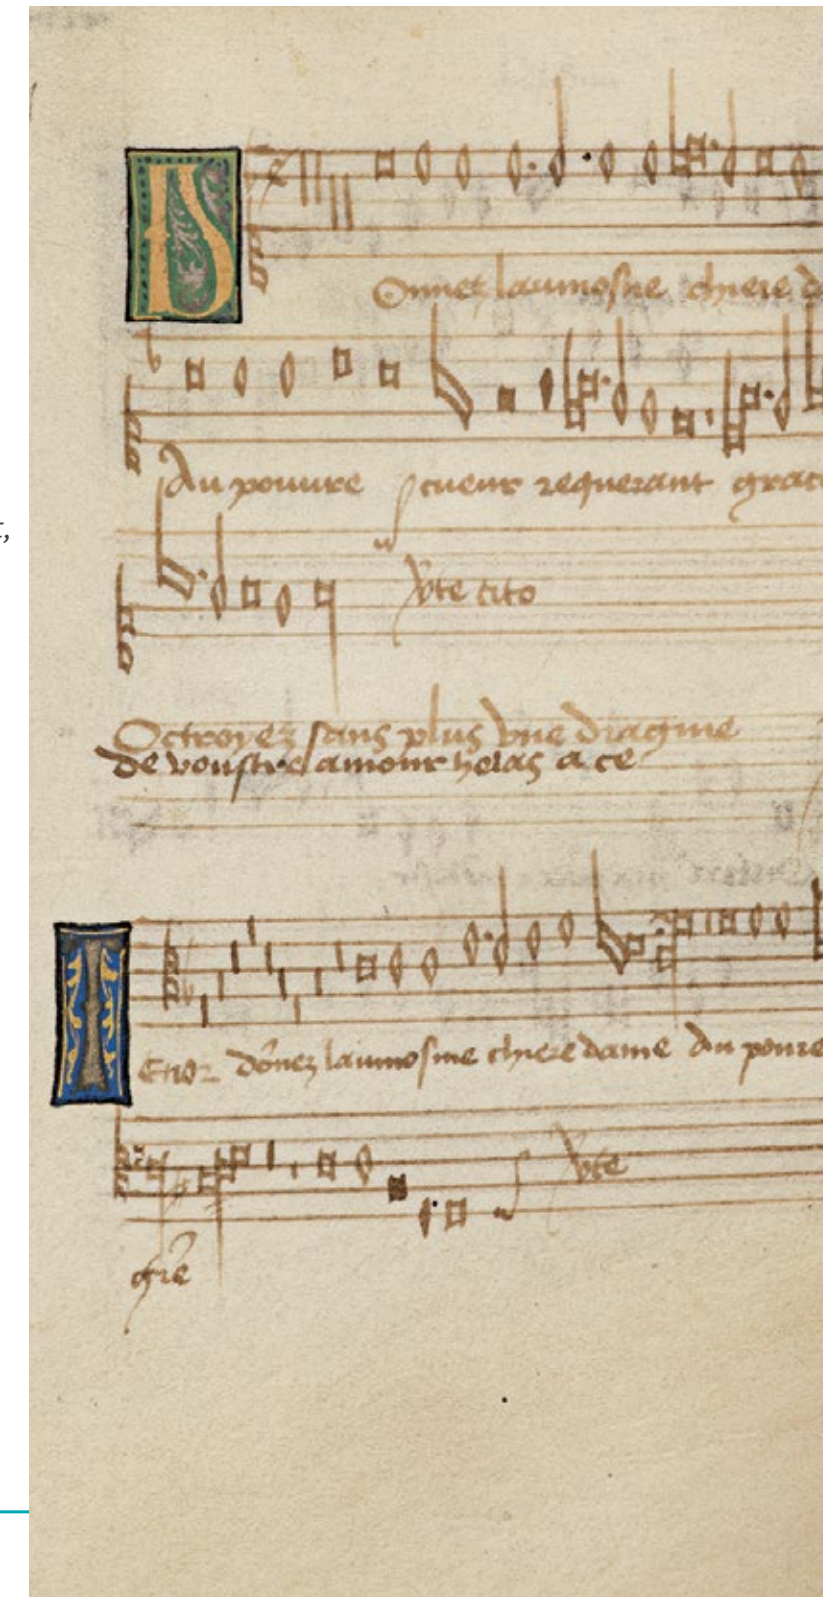 t,
Donnez laumosne chiere d
Au pouure cueur requerant grac
Vte cito
Octroyez sans plus vne dragme
de voustre amour helas a ce
Tenor dōnez laumosme chiere dame Au poure
Vte
grē